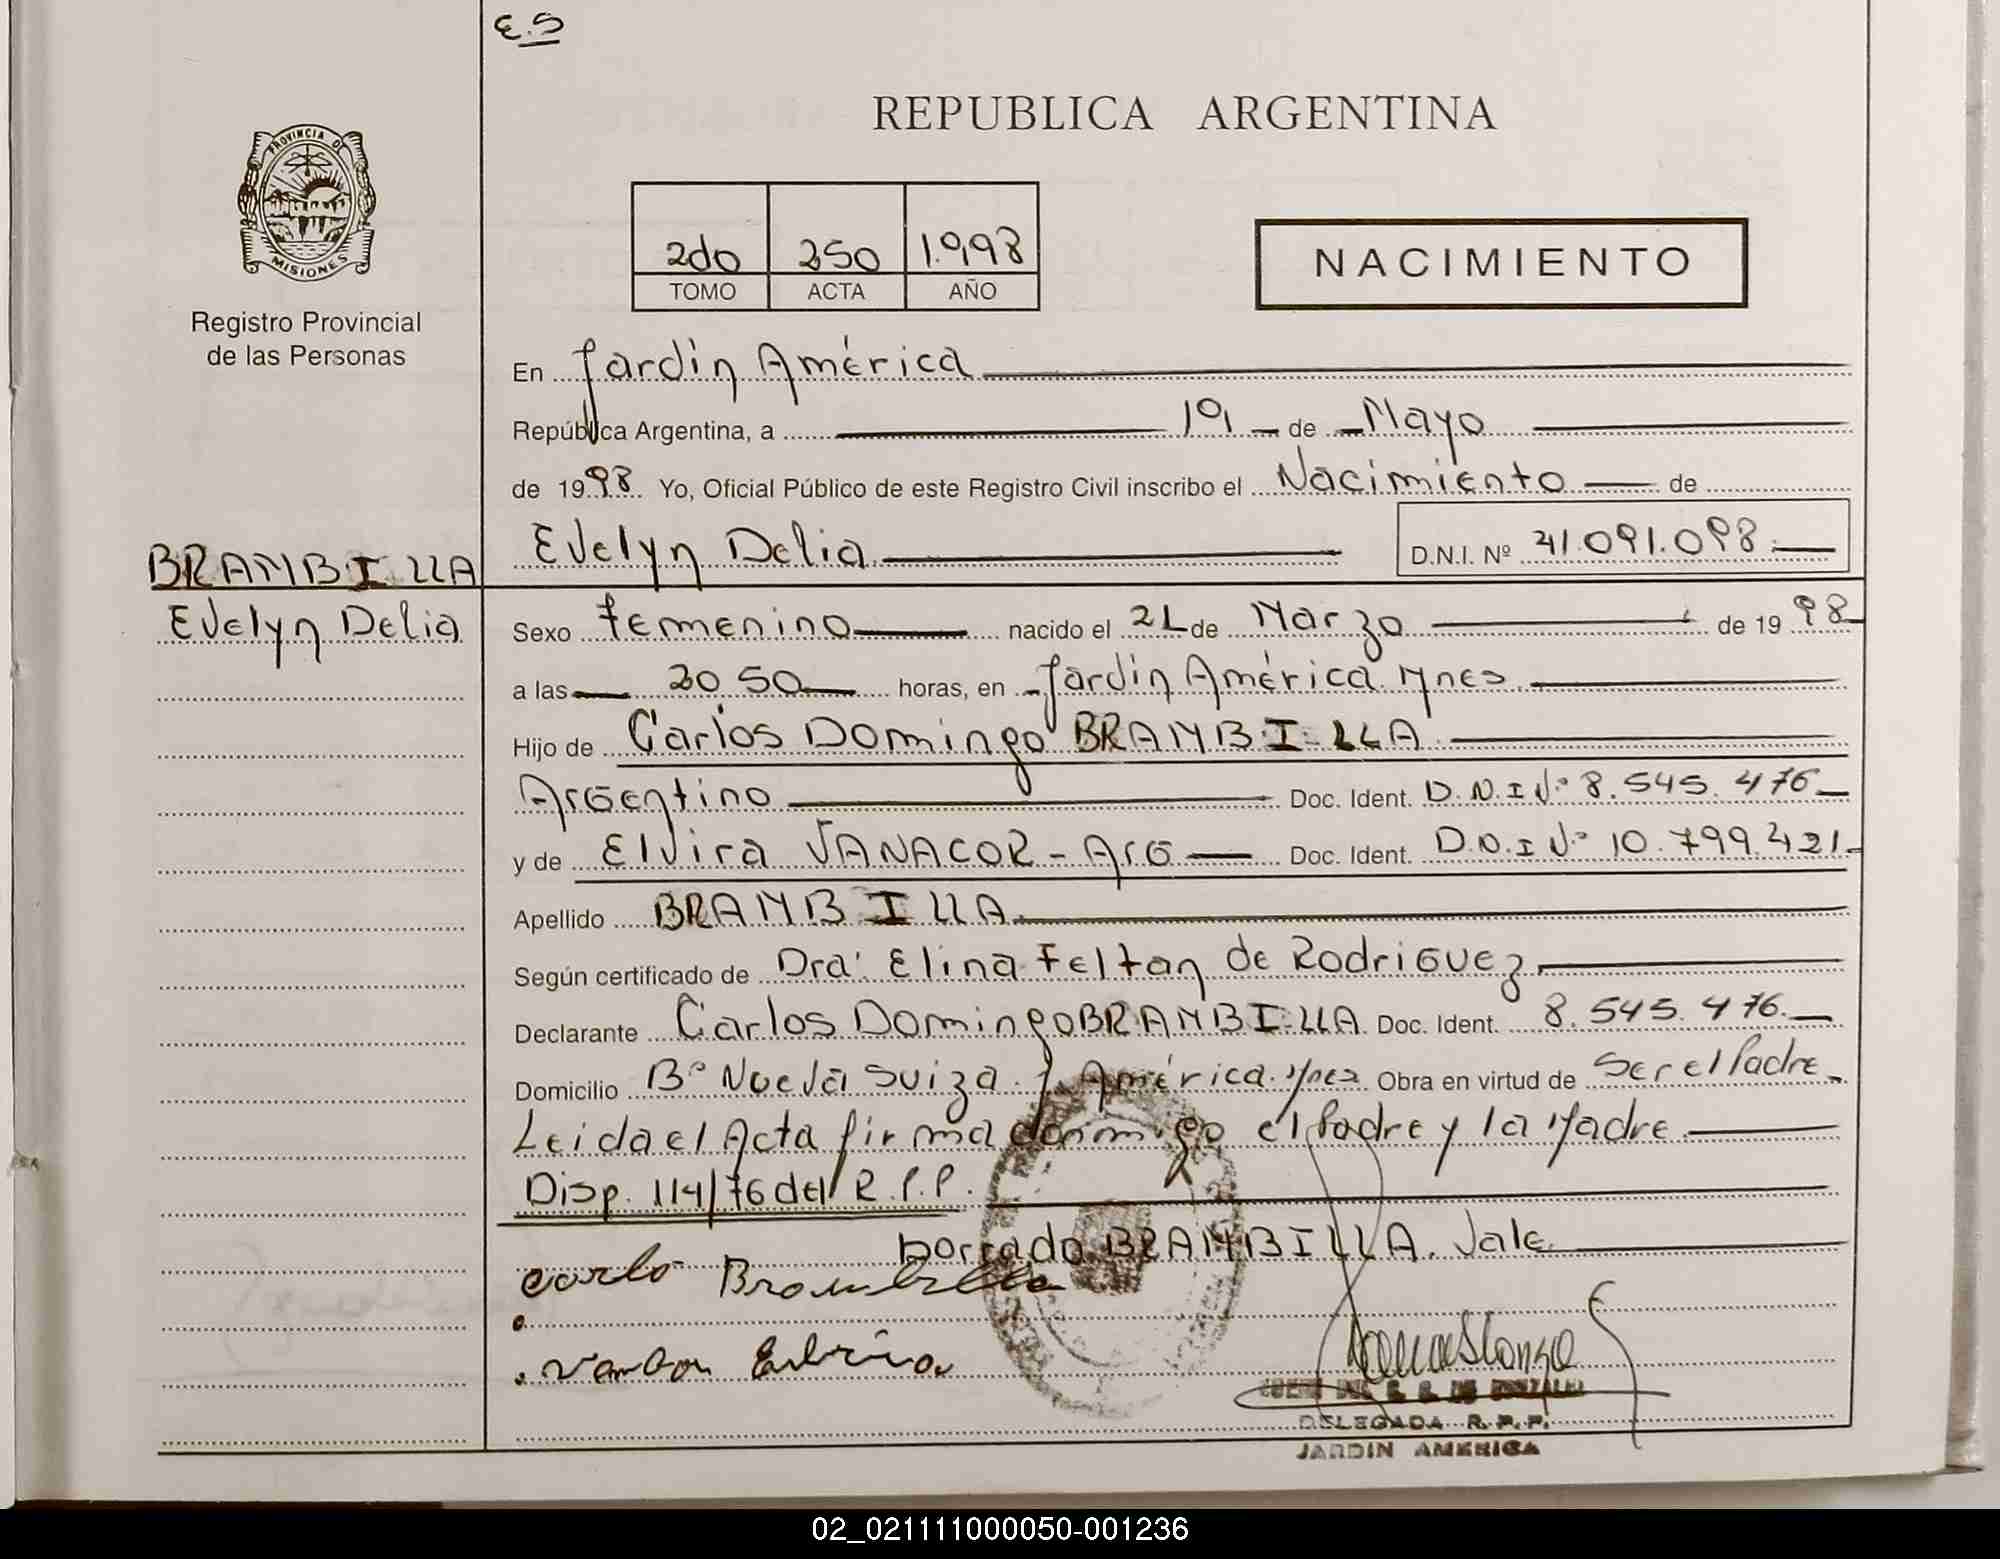 E.S
REPUBLICA ARGENTINA
PROVINCIA DE
MISIONES
Registro Provincial
de las Personas
2do 250 1.998
TOMO ACTA AÑO
NACIMIENTO
En Jardín América
República Argentina, a 19 de Mayo
de 1998 Yo, Oficial Público de este Registro Civil inscribo el Nacimiento de
Evelyn Delia D.N.I. Nº 41.091.098
BRAMBILLA
Evelyn Delia
Sexo femenino nacido el 21 de Marzo de 1998
a las 20,50 horas, en Jardín América. Mnes.
Hijo de Carlos Domingo BRAMBILLA
Argentino Doc. Ident. D.N.I Nº 8.545.476
y de Elvira VANACOR - Arg Doc. Ident. D.N.I Nº 10.799.421
Apellido BRAMBILLA
Según certificado de Dra: Elina Feltan de Rodriguez
Declarante Carlos Domingo BRAMBILLA Doc. Ident. 8.545.476
Domicilio Bº Nueva Suiza. J. América. Mnes Obra en virtud de Ser el Padre
Leida el Acta firma conmigo el Padre y la Madre
Disp. 114/76 del R.P.P.
borrado BRAMBILLA. Vale.
Carlo Brambilla
DELEGADA R.P.P.
JARDIN AMERICA
02_021111000050-001236